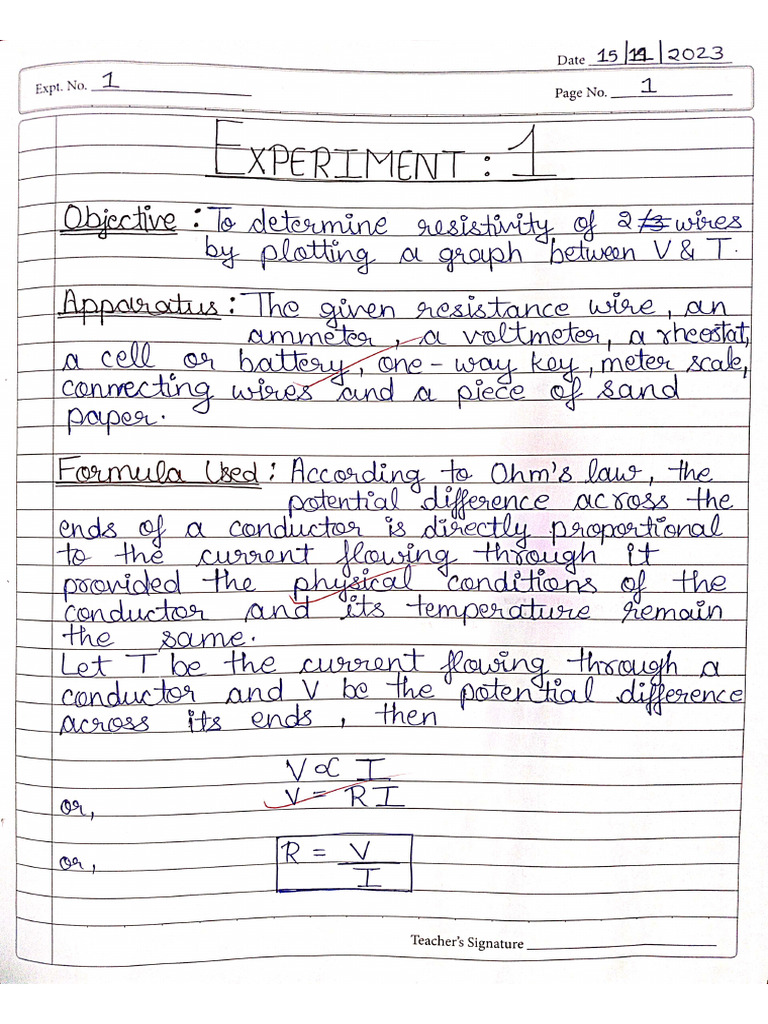 Date 15/11/2023
Expt. No. 1
Page No. 1
EXPERIMENT : 1
Objective : To determine resistivity of 2/3 wires
by plotting a graph between V & T.
Apparatus : The given resistance wire, an
ammeter, a voltmeter, a rheostat,
a cell or battery, one-way key, meter scale,
connecting wires and a piece of sand
paper.
Formula Used : According to Ohm's law, the
potential difference across the
ends of a conductor is directly proportional
to the current flowing through it
provided the physical conditions of the
conductor and its temperature remain
the same.
Let T be the current flowing through a
conductor and V be the potential difference
across its ends, then
V ∝ I
or, V = RI
or, R = V/I
Teacher's Signature